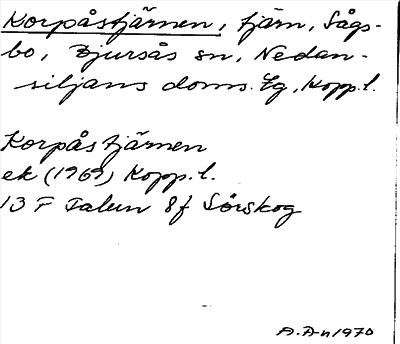 Korpåstjärnen, tjärn, Sågs-
bo, Bjursås sn, Nedan-
siljans doms. Lg, Kopp. l.
Korpåstjärnen
ek (1969) Kopp. l.
13 F Falun 8f Sörskog
A. An 1970